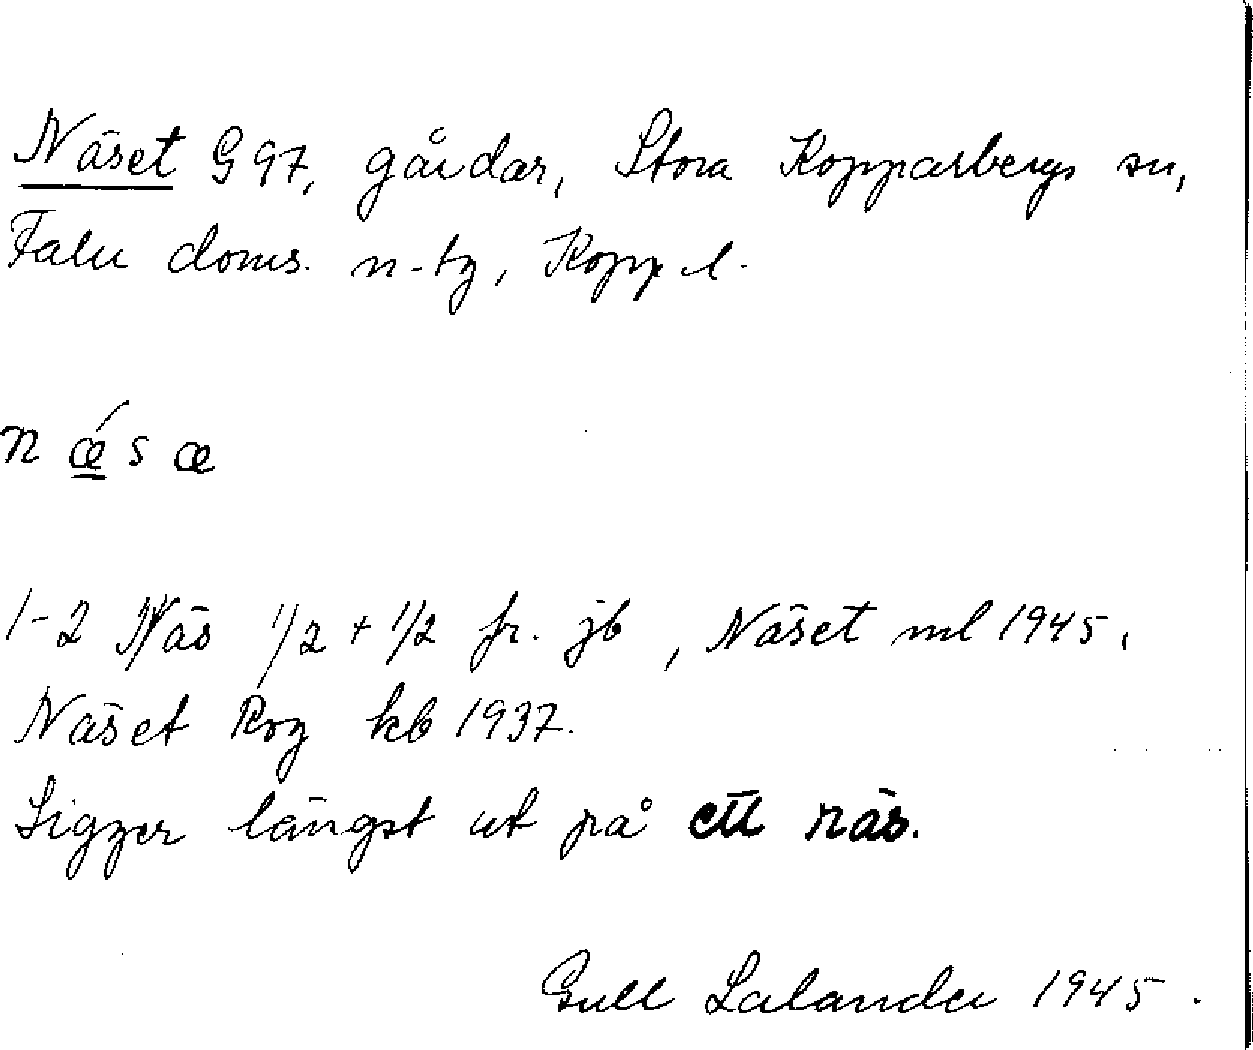 Näset G 97, gårdar, Stora Kopparbergs sn,
Falu doms. n-tg, Kopp. l.
n ǽ s æ
1-2 Näs 1/2 + 1/2 fr. jb, Näset ml 1945.
Näset Rog kb 1937.
Ligger längst ut på ett näs.
Gull Lalander 1945.